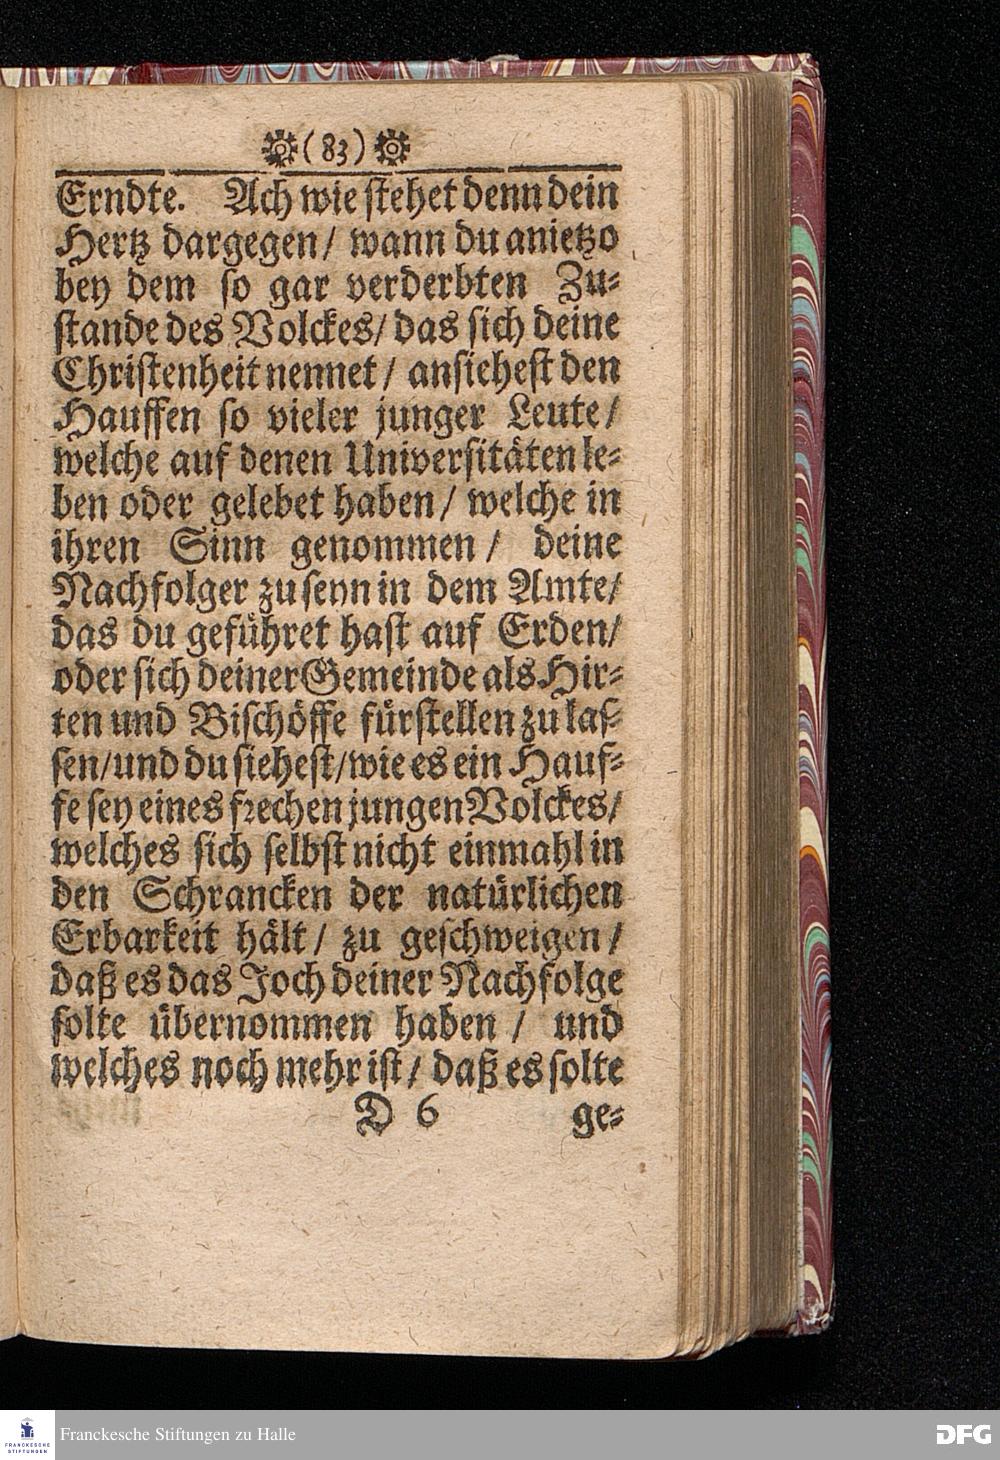 (83)
Erndte. Ach wie stehet denn dein
Hertz dargegen/ wann du anietzo
bey dem so gar verderbten Zu=
stande des Volckes/ das sich deine
Christenheit nennet/ ansiehest den
Hauffen so vieler junger Leute/
welche auf denen Universitäten le=
ben oder gelebet haben/ welche in
ihren Sinn genommen/ deine
Nachfolger zu seyn in dem Amte/
das du geführet hast auf Erden/
oder sich deiner Gemeinde als Hir=
ten und Bischöffe fürstellen zu las=
sen/ und du siehest/ wie es ein Hauf=
fe sey eines frechen jungen Volckes/
welches sich selbst nicht einmahl in
den Schrancken der natürlichen
Erbarkeit hält/ zu geschweigen/
daß es das Joch deiner Nachfolge
solte übernommen haben/ und
welches noch mehr ist/ daß es solte
D 6 ge=
FRANCKESCHE STIFTUNGEN
Franckesche Stiftungen zu Halle
DFG